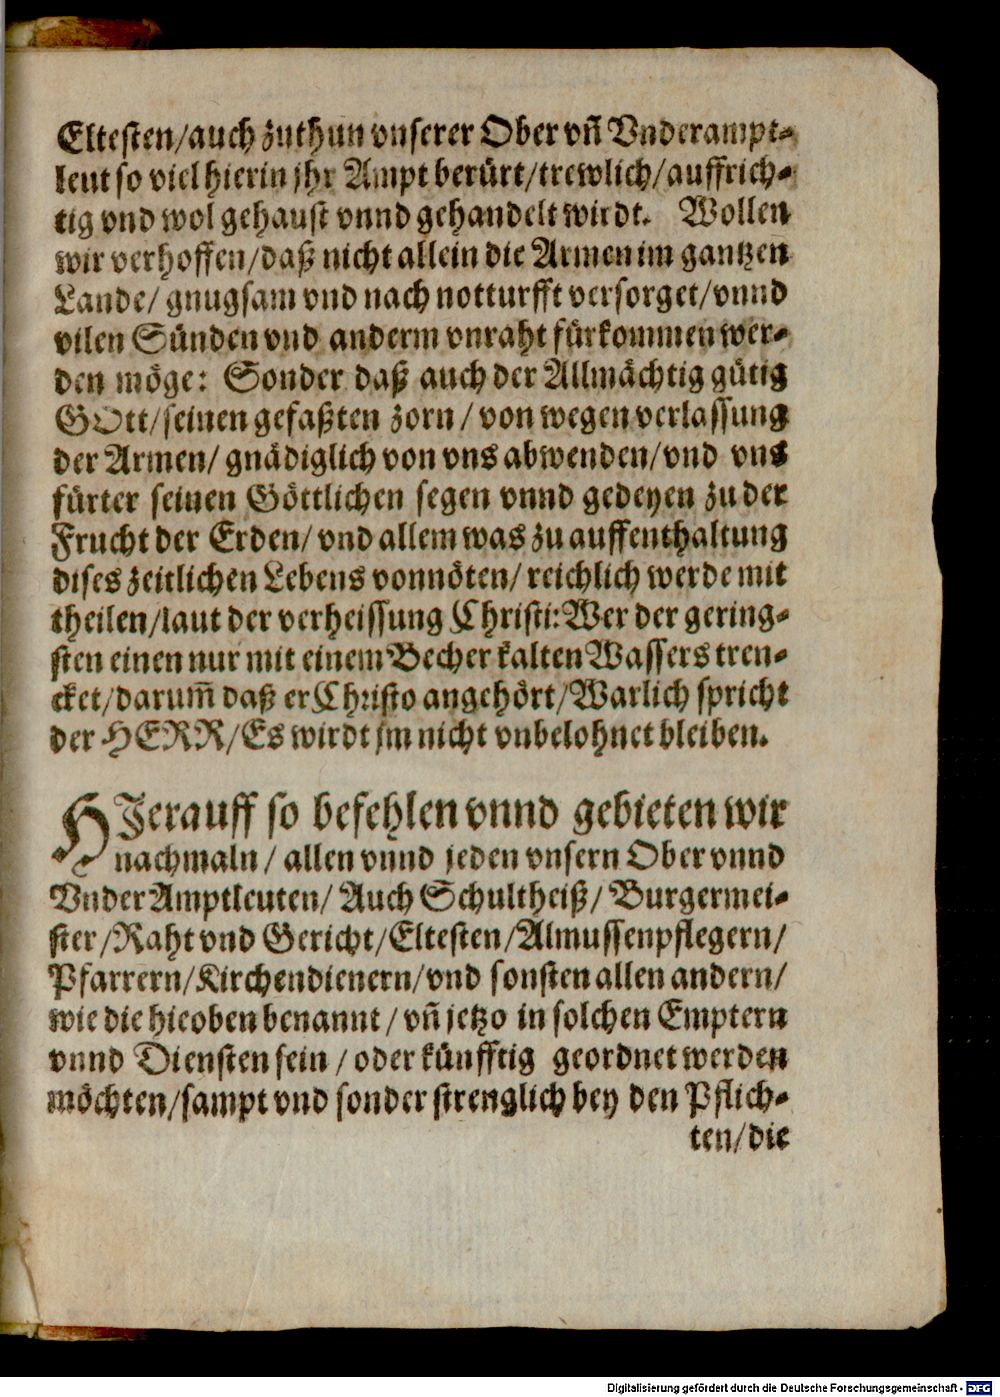 Eltesten/auch zuthun vnserer Ober vñ Vnderampt-
leut so viel hierin jhr Ampt berürt/trewlich/auffrich-
tig vnd wol gehaust vnnd gehandelt wirdt. Wollen
wir verhoffen/daß nicht allein die Armen im gantzen
Lande/ gnugsam vnd nach notturfft versorget/vnnd
vilen Sünden vnd anderm vnraht fürkommen wer-
den möge: Sonder daß auch der Allmächtig gütig
GOtt/seinen gefaßten zorn / von wegen verlassung
der Armen/ gnädiglich von vns abwenden/vnd vns
fürter seinen Göttlichen segen vnnd gedeyen zu der
Frucht der Erden/ vnd allem was zu auffenthaltung
dises zeitlichen Lebens vonnöten/ reichlich werde mit
theilen/laut der verheissung Christi: Wer der gering-
sten einen nur mit einem Becher kalten Wassers tren-
cket/darum̃ daß er Christo angehört/Warlich spricht
der HERR/Es wirdt jm nicht vnbelohnet bleiben.
HJerauff so befehlen vnnd gebieten wir
nachmaln / allen vnnd jeden vnsern Ober vnnd
Vnder Amptleuten/ Auch Schultheiß/ Burgermei-
ster/Raht vnd Gericht/Eltesten/Almussenpflegern/
Pfarrern/Kirchendienern/vnd sonsten allen andern/
wie die hieoben benannt / vñ jetzo in solchen Emptern
vnnd Diensten sein / oder künfftig geordnet werden
möchten/sampt vnd sonder strenglich bey den Pflich-
ten/die
Digitalisierung gefördert durch die Deutsche Forschungsgemeinschaft - DFG